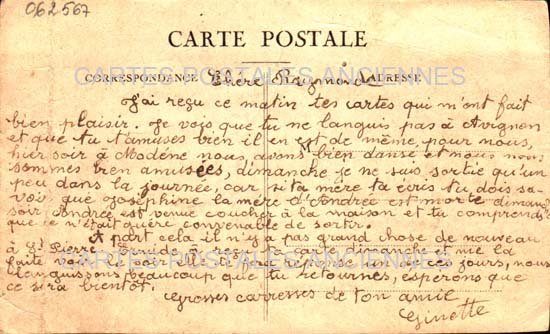 062567
CARTE POSTALE
CARTES POSTALES ANCIENNES
CORRESPONDANCE Chère Raymonde ADRESSE
J'ai reçu ce matin tes cartes qui m'ont fait
bien plaisir. Je vois que tu ne languis pas à Avignon
et que tu t'amuses bien il en est de même pour nous,
hier soir à Modène nous avons bien dansé et nous nous
sommes bien amusées, dimanche je ne suis sortie qu'un
peu dans la journée, car si ta mère t'a écris tu dois sa-
voir que Joséphine la mère d'Andrée est morte dimanche
soir Andrée est venue coucher à la maison et tu comprends
que ce n'était guère convenable de sortir.
A part cela il n'y a pas grand chose de nouveau
à St Pierre reçu ta carte dimanche et me la
faite voir réponse un de ces jours, nous
languissons beaucoup que tu retournes, espérons que
ce sira bientôt.
CARTES POSTALES ANCIENNES
Grosses carresses de ton amie
Ginette